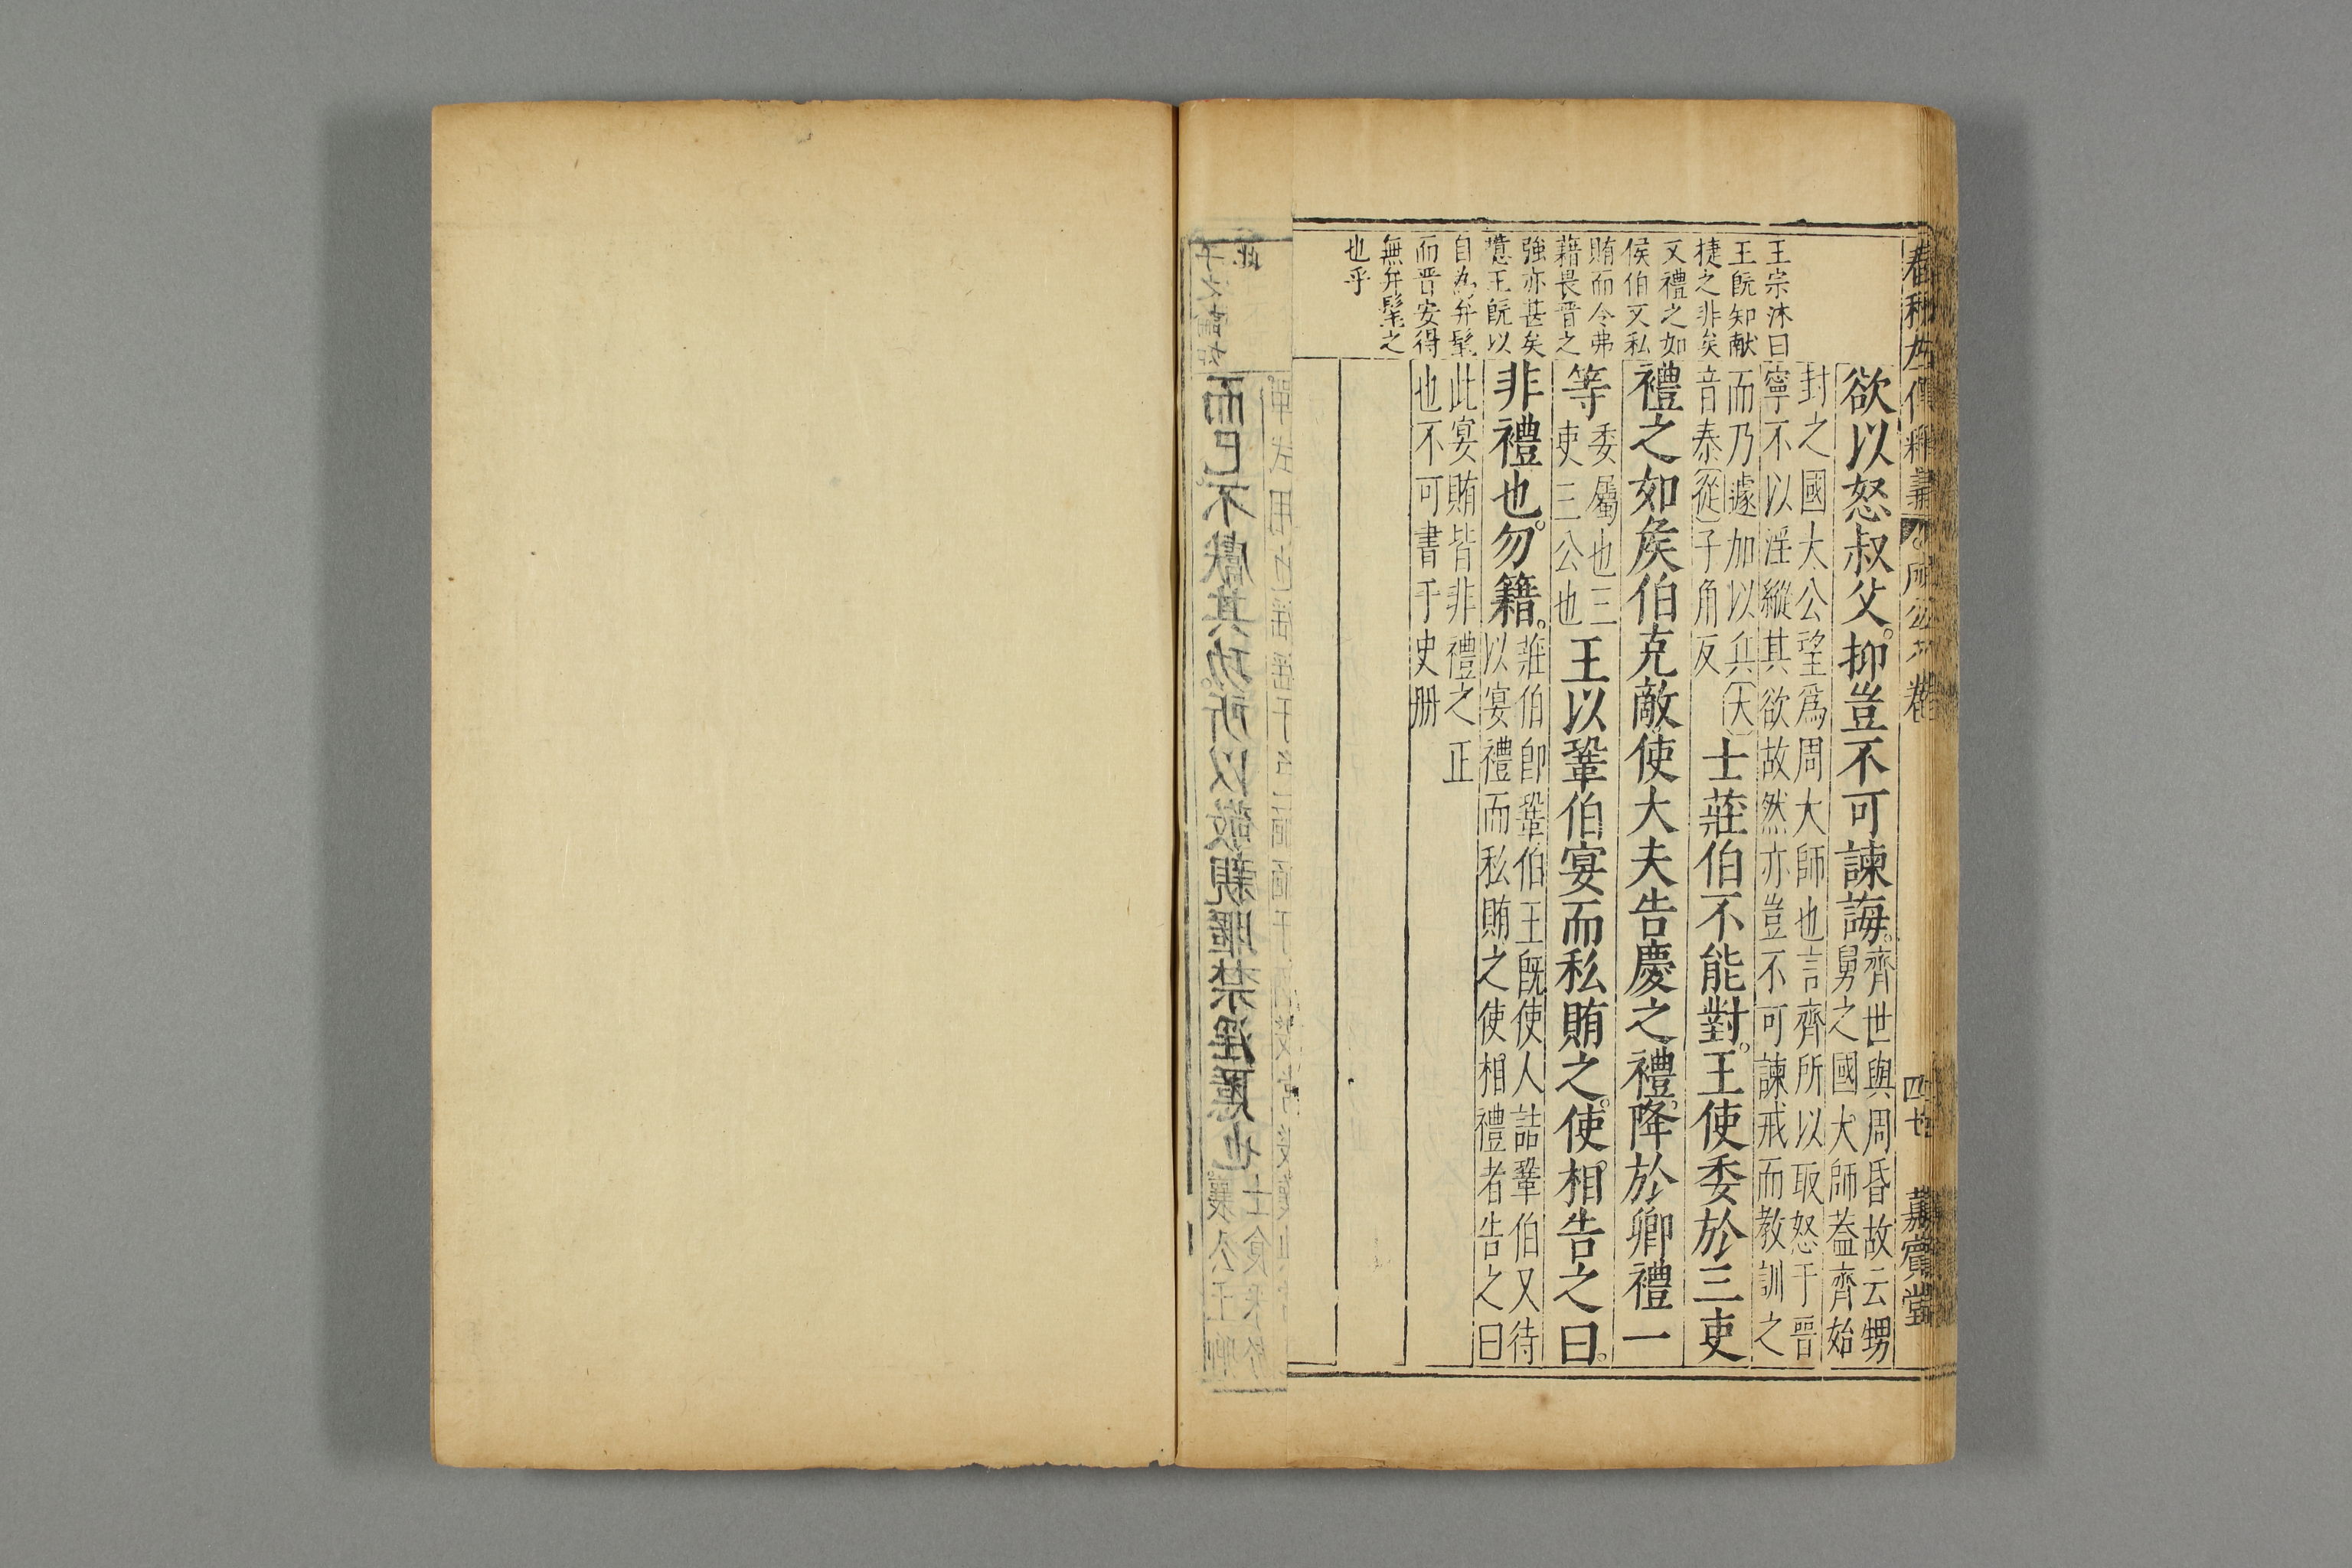 王宗沐曰
王旣知献
捷之非矣
又禮之如
侯伯又私
賄而令弗
藉畏晋之
強亦甚矣
噫王旣以
自為弁髦
而晋安得
無弁髦之
也乎
欲以怒叔父。抑豈不可諫誨。齊世與周昏故云甥
舅之國大師葢齊始
封之國大公望爲周大師也言齊所以取怒于晋
寧不以淫縱其欲故然亦豈不可諫戒而教訓之
而乃遽加以兵〔大〕
音泰〔從〕子角反
士莊伯不能對。王使委於三吏
禮之如矦伯克敵使大夫告慶之禮。降於卿禮一
等
委屬也三
吏三公也
王以鞏伯宴而私賄之。使相告之曰。
非禮也。勿籍。
莊伯卽鞏伯王旣使人詰鞏伯又待
以宴禮而私賄之使相禮者告之曰
此宴賄皆非禮之正
也不可書于史册
四七
嘉賓堂
而已不獻其功。所以敬親暱禁淫慝也